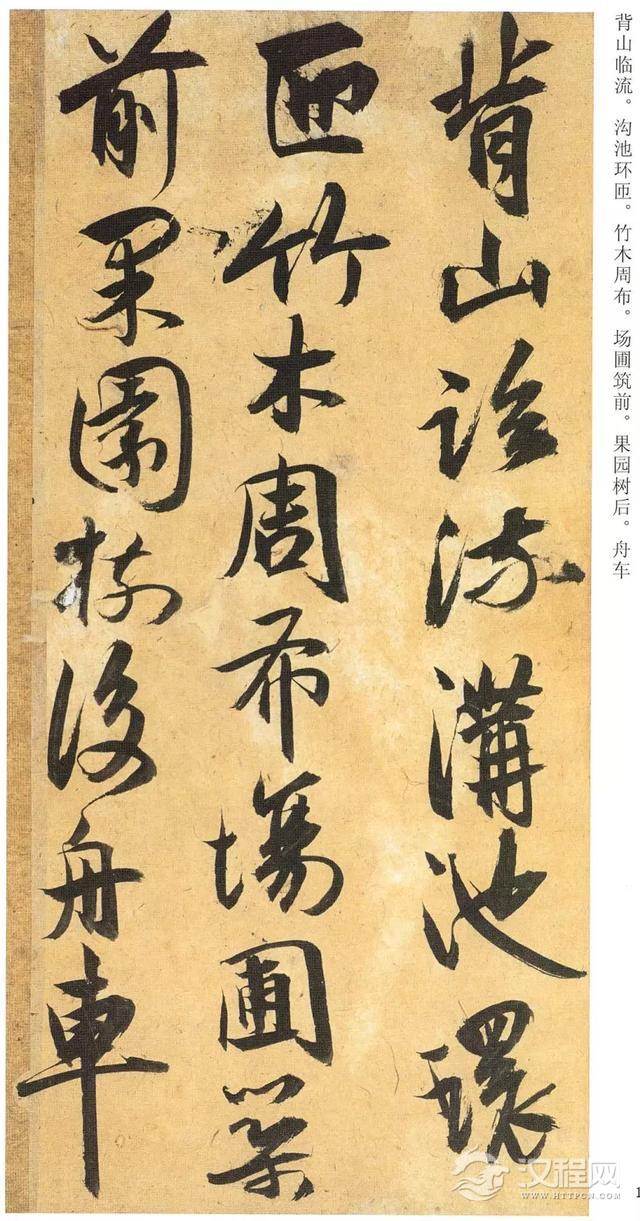 背山临流。沟池环匝。竹木周布。场圃筑前。果园树后。舟车
背山臨流溝池環
匝竹木周布場圃築
前果園樹後舟車
汉程网
WWW.HTTPCN.COM